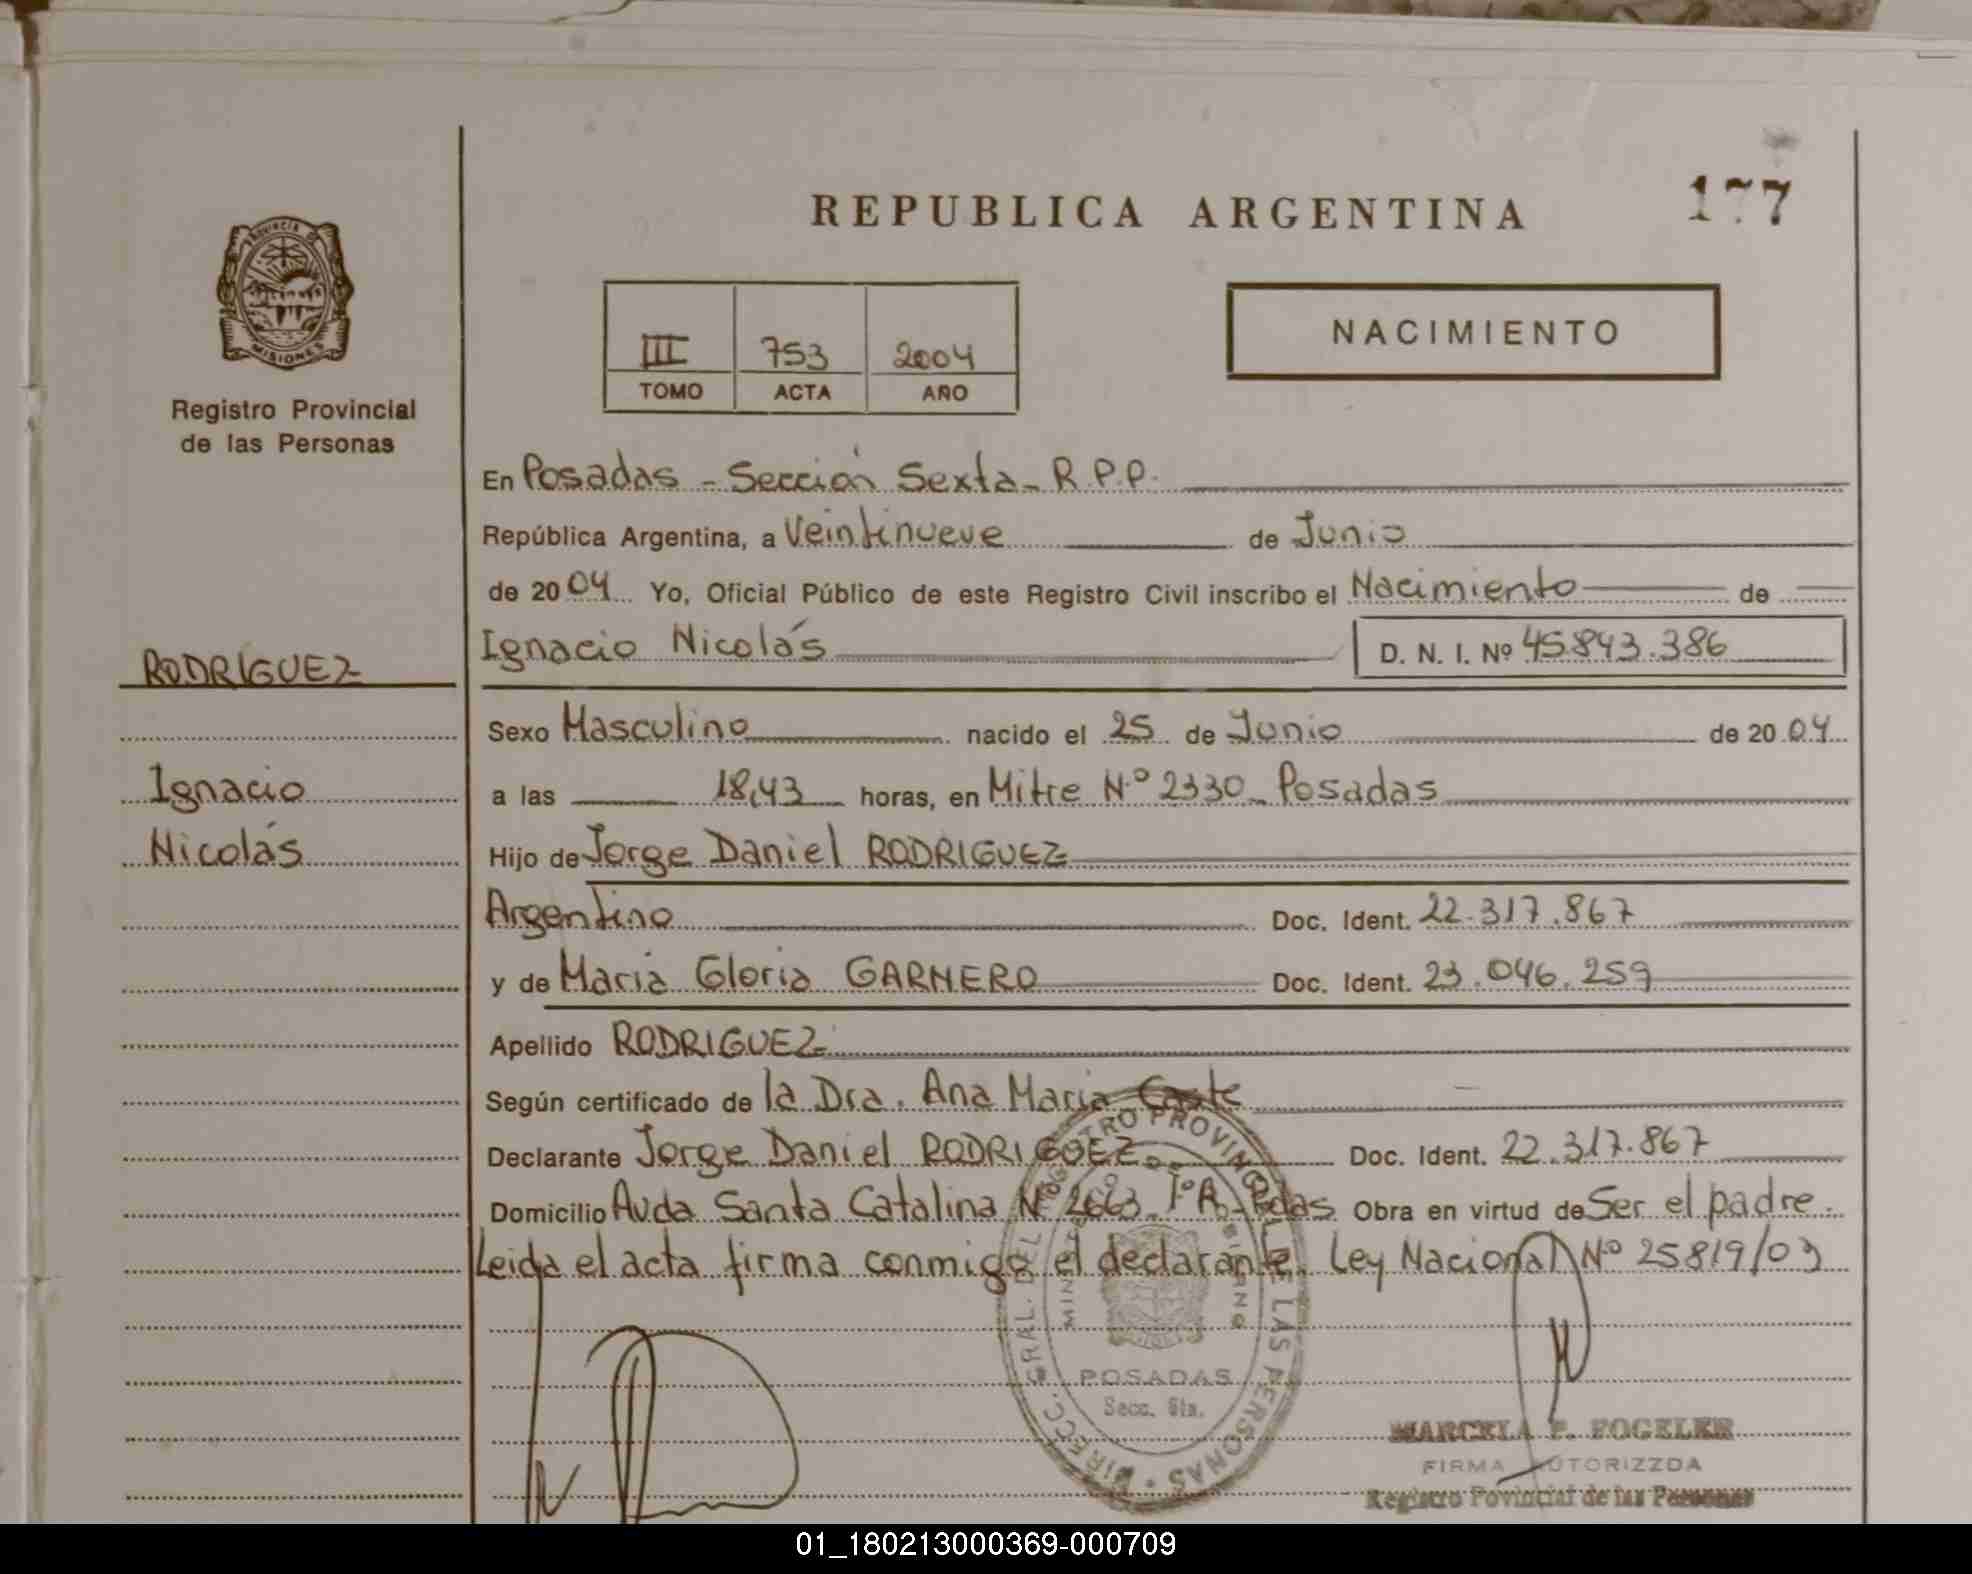 REPUBLICA ARGENTINA
177
PROVINCIA DE
MISIONES
Registro Provincial
de las Personas
III 753 2004
TOMO ACTA AÑO
NACIMIENTO
En Posadas - Sección Sexta - R.P.P.
República Argentina, a Veintinueve de Junio
de 2004 Yo, Oficial Público de este Registro Civil inscribo el Nacimiento de
Ignacio Nicolás D. N. I. Nº 45.843.386
RODRIGUEZ
Ignacio
Nicolás
Sexo Masculino nacido el 25 de Junio de 2004
a las 18,43 horas, en Mitre N.º 2330 - Posadas
Hijo de Jorge Daniel RODRIGUEZ
Argentino Doc. Ident. 22.317.867
y de Maria Gloria GARNERO Doc. Ident. 23.046.259
Apellido RODRIGUEZ
Según certificado de la Dra. Ana Maria
Declarante Jorge Daniel RODRIGUEZ Doc. Ident. 22.317.867
Domicilio Avda Santa Catalina Nº 2663 Obra en virtud de Ser el padre.
Leida el acta firma conmigo el declarante. Ley Nacional Nº 25819/03
DIRECC. GRAL. DEL REGISTRO PROVINCIAL DE LAS PERSONAS
POSADAS
Secc. 6ta.
MARCELA P. FOGELER
FIRMA AUTORIZZDA
Registro Povincial de las Personas
01_180213000369-000709